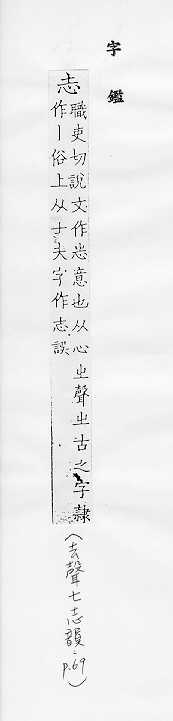 字鑑
志
職吏切說文作𢗍意也从心㞢聲㞢古之字隸
作丨俗上从士夫字作志誤
(去聲七志韻:p.69)